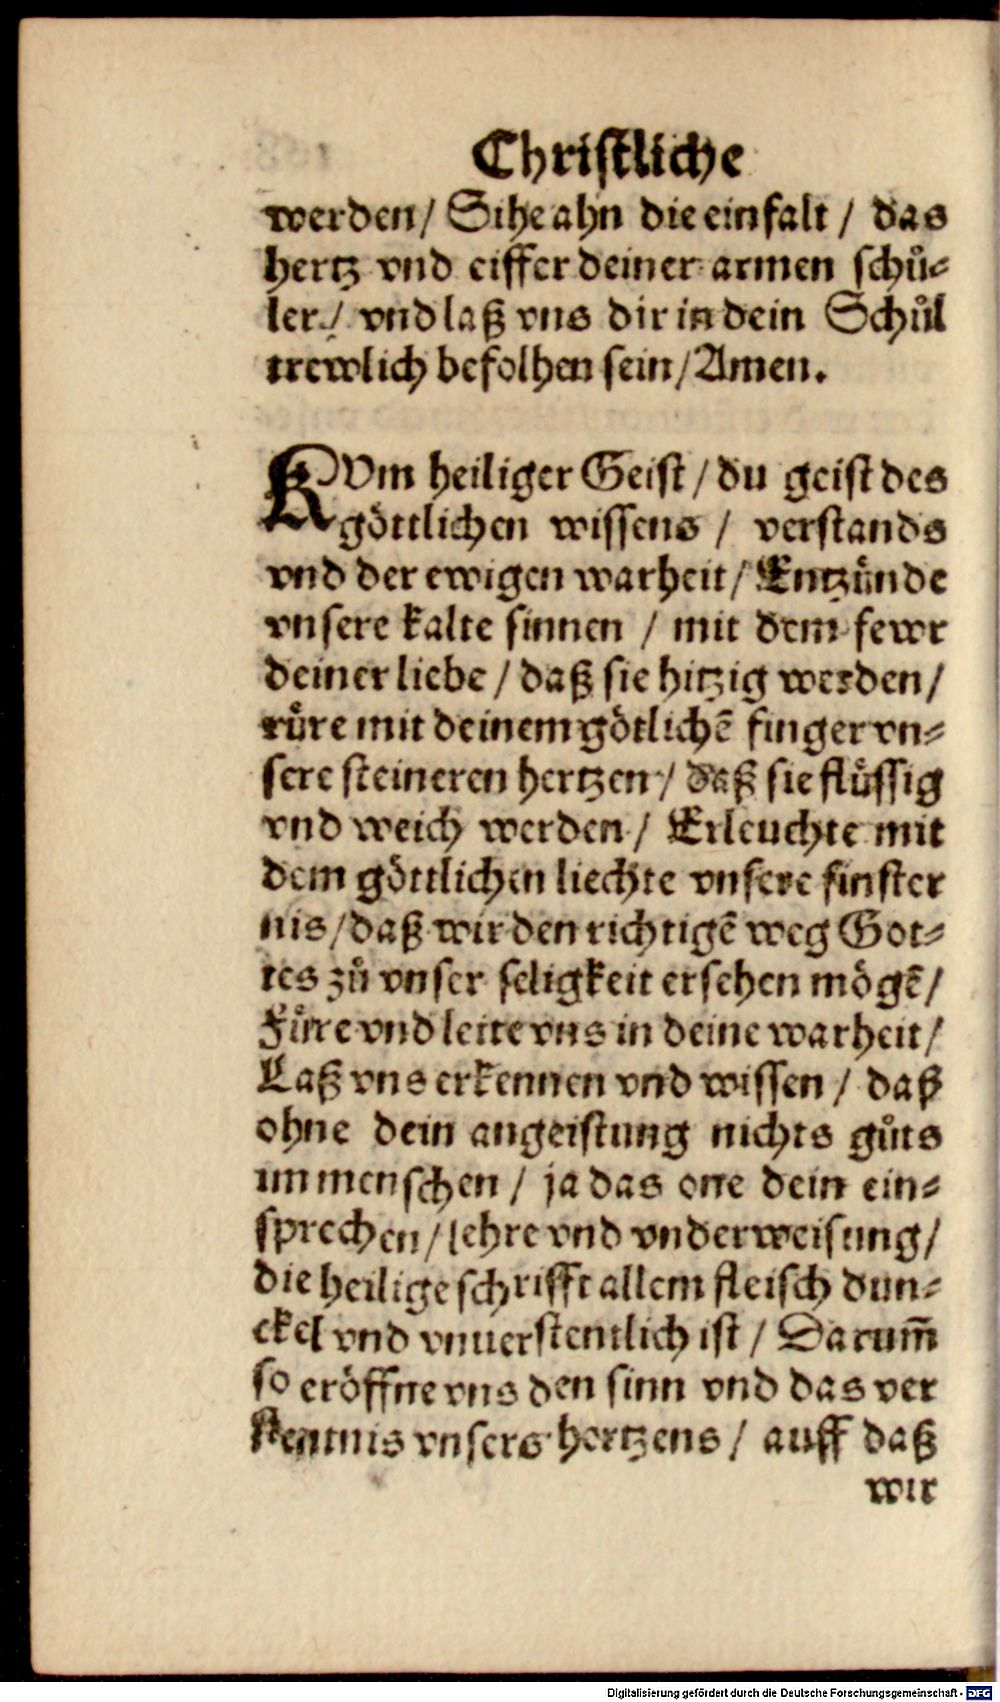 Christliche
werden/ Sihe ahn die einfalt / das
hertz vnd eiffer deiner armen schuͤ-
ler / vnd laß vns dir in dein Schuͦl
trewlich befolhen sein/ Amen.
KVm heiliger Geist / du geist des
göttlichen wissens / verstands
vnd der ewigen warheit/ Entzünde
vnsere kalte sinnen / mit dem fewr
deiner liebe / daß sie hitzig werden/
ruͤre mit deinem götlichẽ finger vn-
sere steineren hertzen / daß sie flüssig
vnd weich werden / Erleuchte mit
dem göttlichen liechte vnsere finster
nis/ daß wir den richtigẽ weg Got-
tes zuͦ vnser seligkeit ersehen mögẽ/
Fuͤre vnd leite vns in deine warheit/
Laß vns erkennen vnd wissen / daß
ohne dein angeistung nichts guͦts
im menschen / ja das one dein ein-
sprechen/ lehre vnd vnderweisung/
die heilige schrifft allem fleisch dun-
ckel vnd vnuerstentlich ist / Darum̃
so eröffne vns den sinn vnd das ver
stentnis vnsers hertzens / auff daß
wir
Digitalisierung gefördert durch die Deutsche Forschungsgemeinschaft - DFG